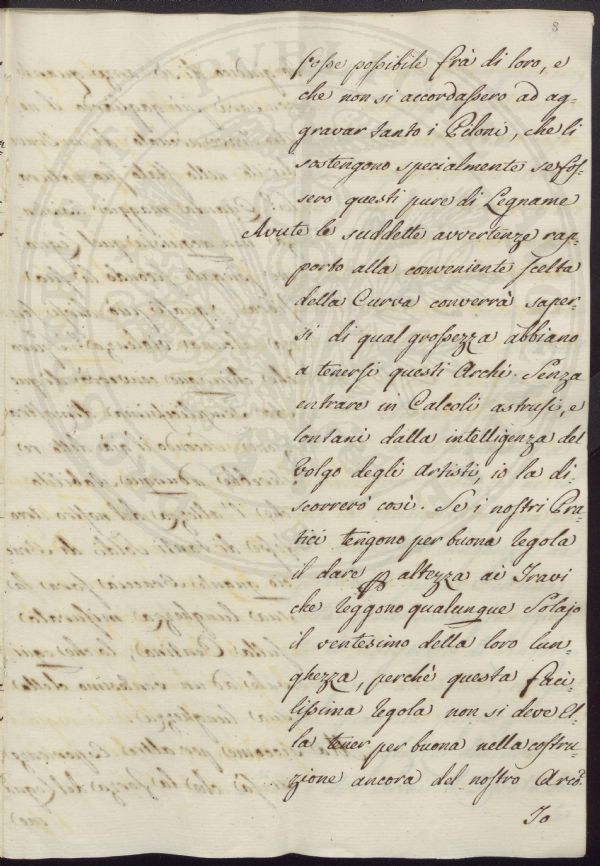 8
fosse possibile frà di loro, e
che non si accordassero ad ag-
gravar tanto i Piloni, che li
sostengono specialmente se fos-
sero questi pure di Legname
Avute le suddette avvertenze rap-
porto alla conveniente scelta
della Curva converrà saper-
si di qual grossezza abbiano
a tenersi questi Archi. Senza
entrare in Calcoli astrusi, e
lontani dalla intelligenza del
Volgo degli Artisti, io la di-
scorrerò così. Se i nostri Pra-
tici tengono per buona regola
il dare p altezza ai Travi
che reggono qualunque Solajo
il ventesimo della loro lun-
ghezza, perchè questa faci-
lissima regola non si deve El-
la tener per buona nella costru-
zione ancora del nostro Arco?
Io